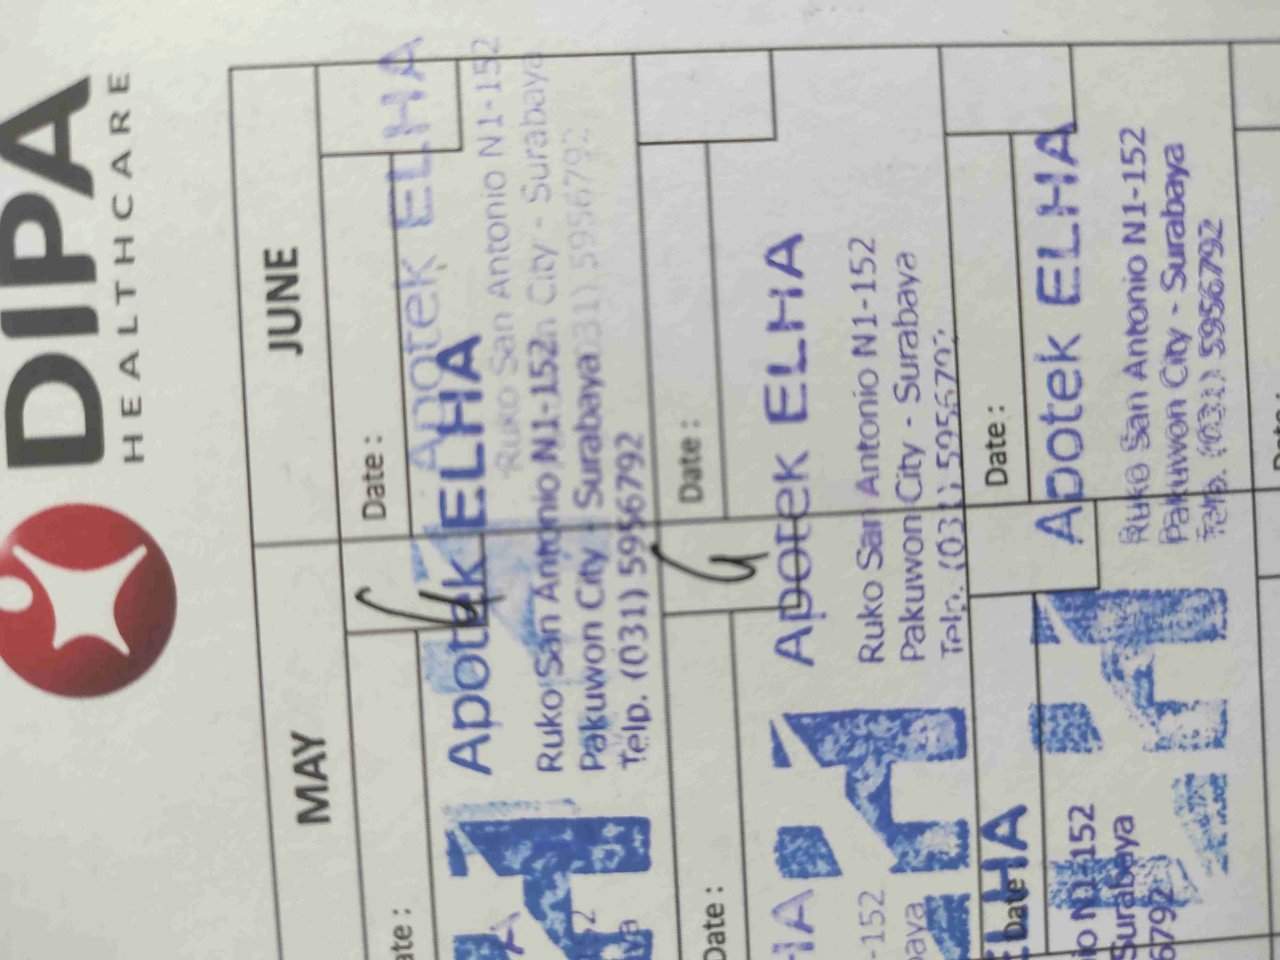 DIPA
HEALTHCARE
MAY
JUNE
Date :
Apotek ELHA
Ruko San Antonio N1-152
City - Surabaya
031) 5956792
ate :
Apotek ELHA
Ruko San Antonio N1-152
Pakuwon City - Surabaya
Telp. (031) 5956792
Date :
Date :
Apotek ELHA
Ruko San Antonio N1-152
Pakuwon City - Surabaya
Telp. (031)
Date :
Apotek ELHA
Ruko San Antonio N1-152
Pakuwon City - Surabaya
Telp. (031) 5956792
HA
-152
baya
Date :
ELHA
io N1-152
Surabaya
6792